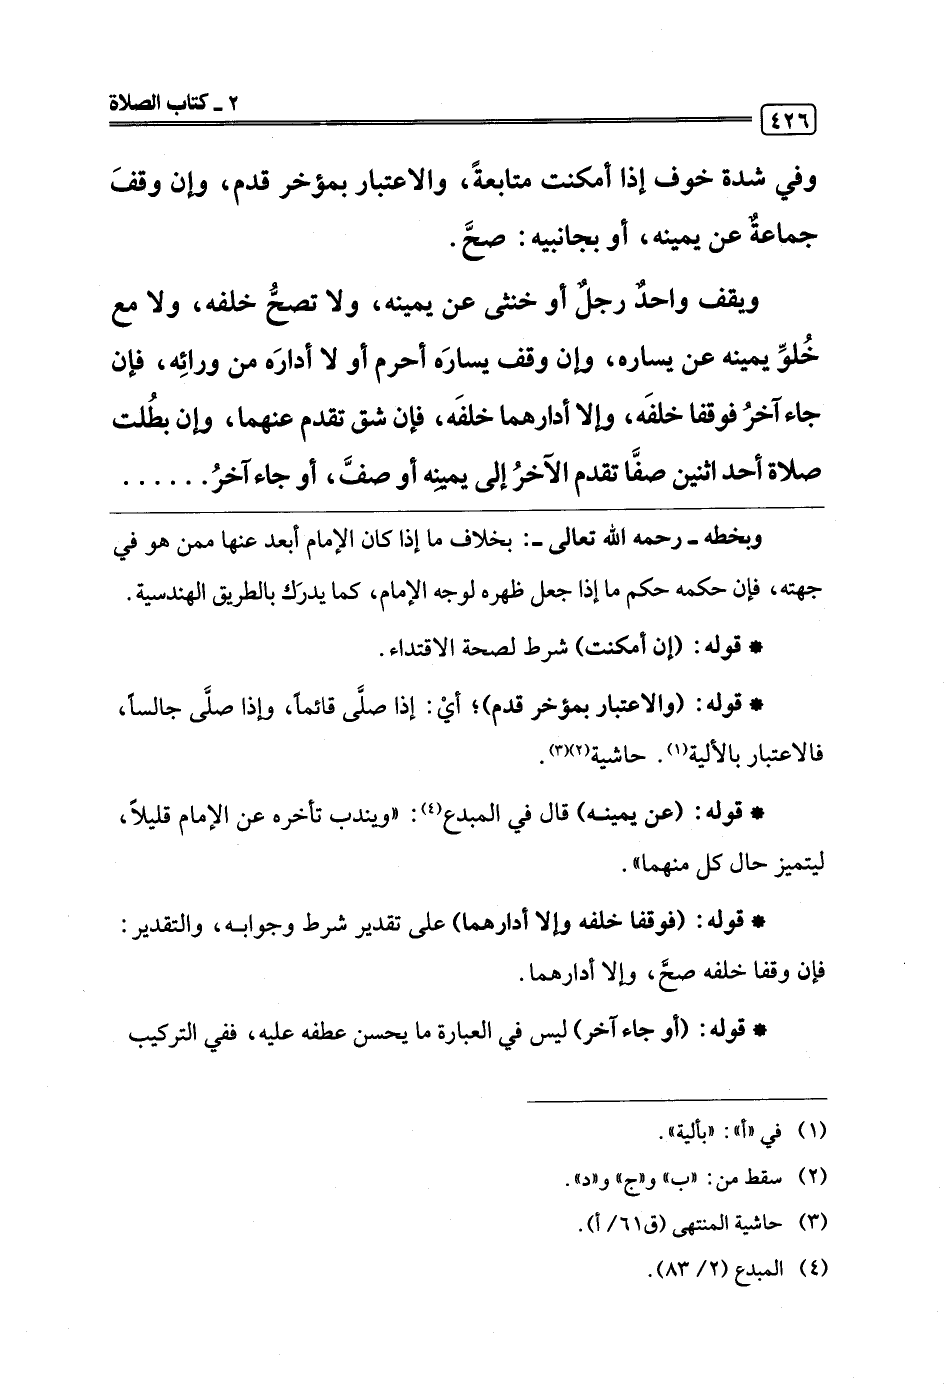 ٢ ـ كتاب الصلاة
٤٢٦
وفي شدة خوف إذا أمكنت متابعةً، والاعتبار بمؤخر قدم، وإن وقفَ
جماعةٌ عن يمينه، أو بجانبيه: صحَّ.
ويقف واحدٌ رجلٌ أو خنثى عن يمينه، ولا تصحُّ خلفه، ولا مع
خُلوِّ يمينه عن يساره، وإن وقف يسارَه أحرم أو لا أدارَه من ورائِه، فإن
جاء آخرُ فوقفا خلفَه، وإلا أدارهما خلفَه، فإن شق تقدم عنهما، وإن بطُلت
صلاة أحد اثنين صفَّا تقدم الآخرُ إلى يمينِه أو صفَّ، أو جاء آخرُ......
وبخطه ـ رحمه الله تعالى ـ: بخلاف ما إذا كان الإمام أبعد عنها ممن هو في
جهته، فإن حكمه حكم ما إذا جعل ظهره لوجه الإمام، كما يدرَك بالطريق الهندسية.
* قوله: (إن أمكنت) شرط لصحة الاقتداء.
* قوله: (والاعتبار بمؤخر قدم)؛ أيْ: إذا صلَّى قائماً، وإذا صلَّى جالساً،
فالاعتبار بالألية(١). حاشية(٢)(٣).
* قوله: (عن يمينـه) قال في المبدع(٤): «ويندب تأخره عن الإمام قليلاً،
ليتميز حال كل منهما».
* قوله: (فوقفا خلفه وإلا أدارهما) على تقدير شرط وجوابـه، والتقدير:
فإن وقفا خلفه صحَّ، وإلا أدارهما.
* قوله: (أو جاء آخر) ليس في العبارة ما يحسن عطفه عليه، ففي التركيب
(١) في «أ»: «بألية».
(٢) سقط من: «ب» و«ج» و«د».
(٣) حاشية المنتهى (ق٦١/ أ).
(٤) المبدع (٢/ ٨٣).